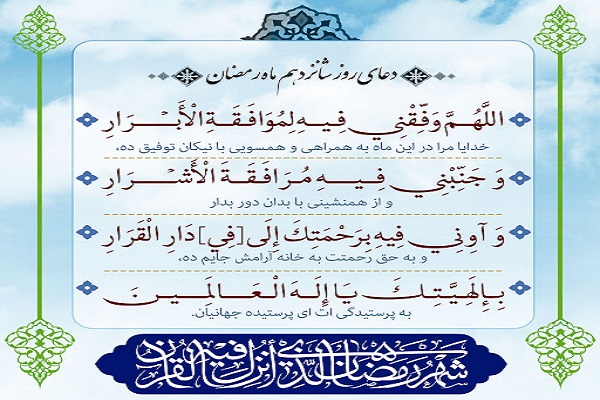 دعای روز شانزدهم ماه رمضان
اللَّهُمَّ وَفِّقْنِي فِيهِ لِمُوَافَقَةِ الْأَبْرَارِ
خدایا مرا در این ماه به همراهی و همسویی با نیکان توفیق ده،
وَ جَنِّبْنِي فِيهِ مُرَافَقَةَ الْأَشْرَارِ
و از همنشینی با بدان دور بدار
وَ آوِنِي فِيهِ بِرَحْمَتِكَ إِلَى [فِي] دَارِ الْقَرَارِ
و به حق رحمتت به خانه آرامش جایم ده،
بِإِلَهِيَّتِكَ يَا إِلَهَ الْعَالَمِينَ
به پرستیدگی ات ای پرستیده جهانیان.
شهر رمضان الذي أنزل فيه القرآن